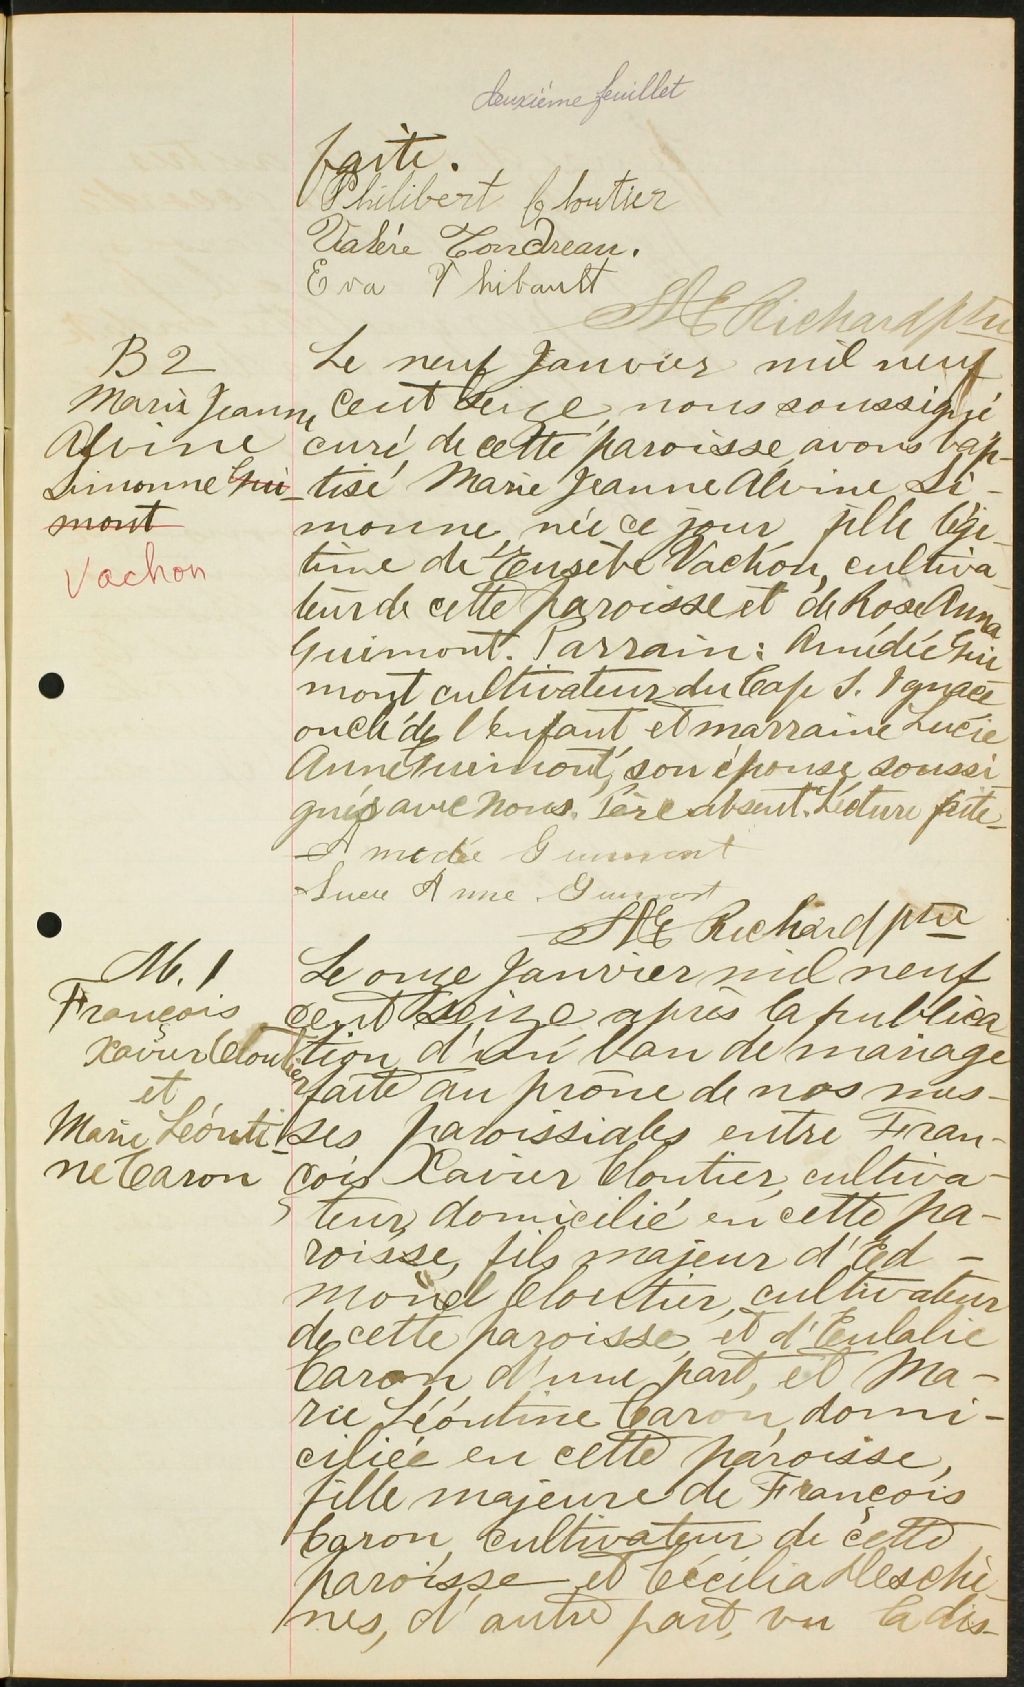 deuxième feuillet
faite.
Philibert Cloutier
Valère Tondreau.
Eva Thibault
Richard ptre
B 2
Marie Jeanne
Alvine
Simonne Gui-
mont
Vachon
Le neuf Janvier mil neuf
cent seize nous soussigné
curé de cette paroisse avons bap-
tisé Marie Jeanne Alvine Si-
monne, née ce jour fille légi-
time de Eusèbe Vachon, cultiva-
teur de cette paroisse et de Rose Anna
Guimont. Parrain: Amédée Gui
mont cultivateur du Cap S. Ignace
oncle de l'enfant et marraine Lucie
Anne Guimont, son épouse soussi
gnés avec nous. Père absent. Lecture faite-
Amedée Guimont
Lucie Anne Guimont
Richard ptre
M. 1
François
Xavier Cloutier
et
Marie Léonti-
ne Caron
Le onze Janvier mil neuf
cent seize après la publica
tion d'un ban de mariage
faite au prône de nos mes-
ses paroissiales entre Fran-
çois Xavier Cloutier, cultiva-
teur, domicilié en cette pa-
roisse, fils majeur d'Ed-
mond Cloutier, cultivateur
de cette paroisse et d'Eulalie
Caron d'une part, et Ma-
rie Léontine Caron, domi-
ciliée en cette paroisse,
fille majeure de François
Caron, cultivateur de cette
paroisse et Cécilia Deschê
nes, d'autre part, vu la dis-